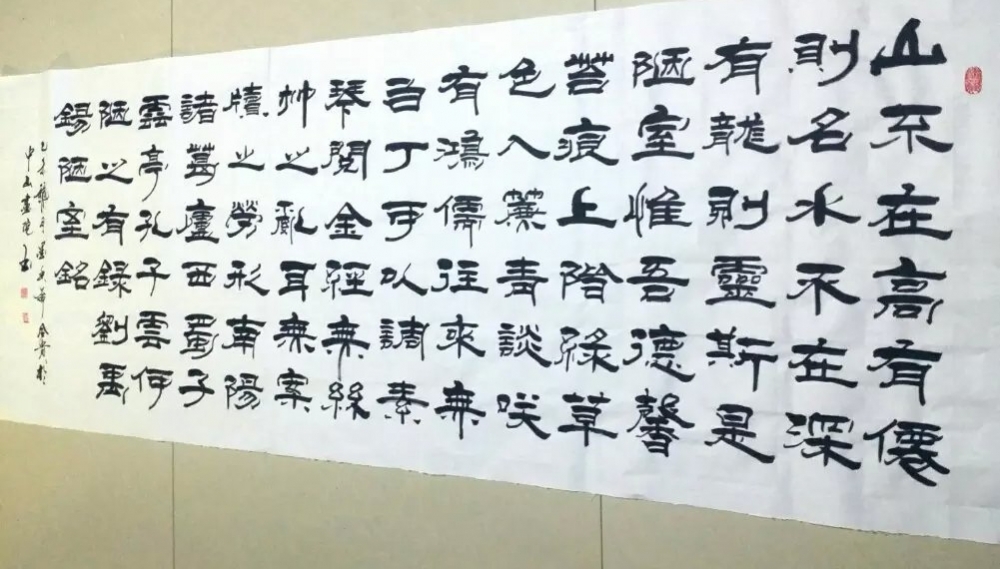 山不在高有僊
則名水不在深
有龍則靈斯是
陋室惟吾德馨
苔痕上階綠草
色入簾青談咲
有鴻儒往來無
白丁可以調素
琴閱金經無絲
竹之亂耳無案
牘之勞形南陽
諸葛廬西蜀子
雲亭孔子雲何
陋之有錄劉禹
錫陋室銘